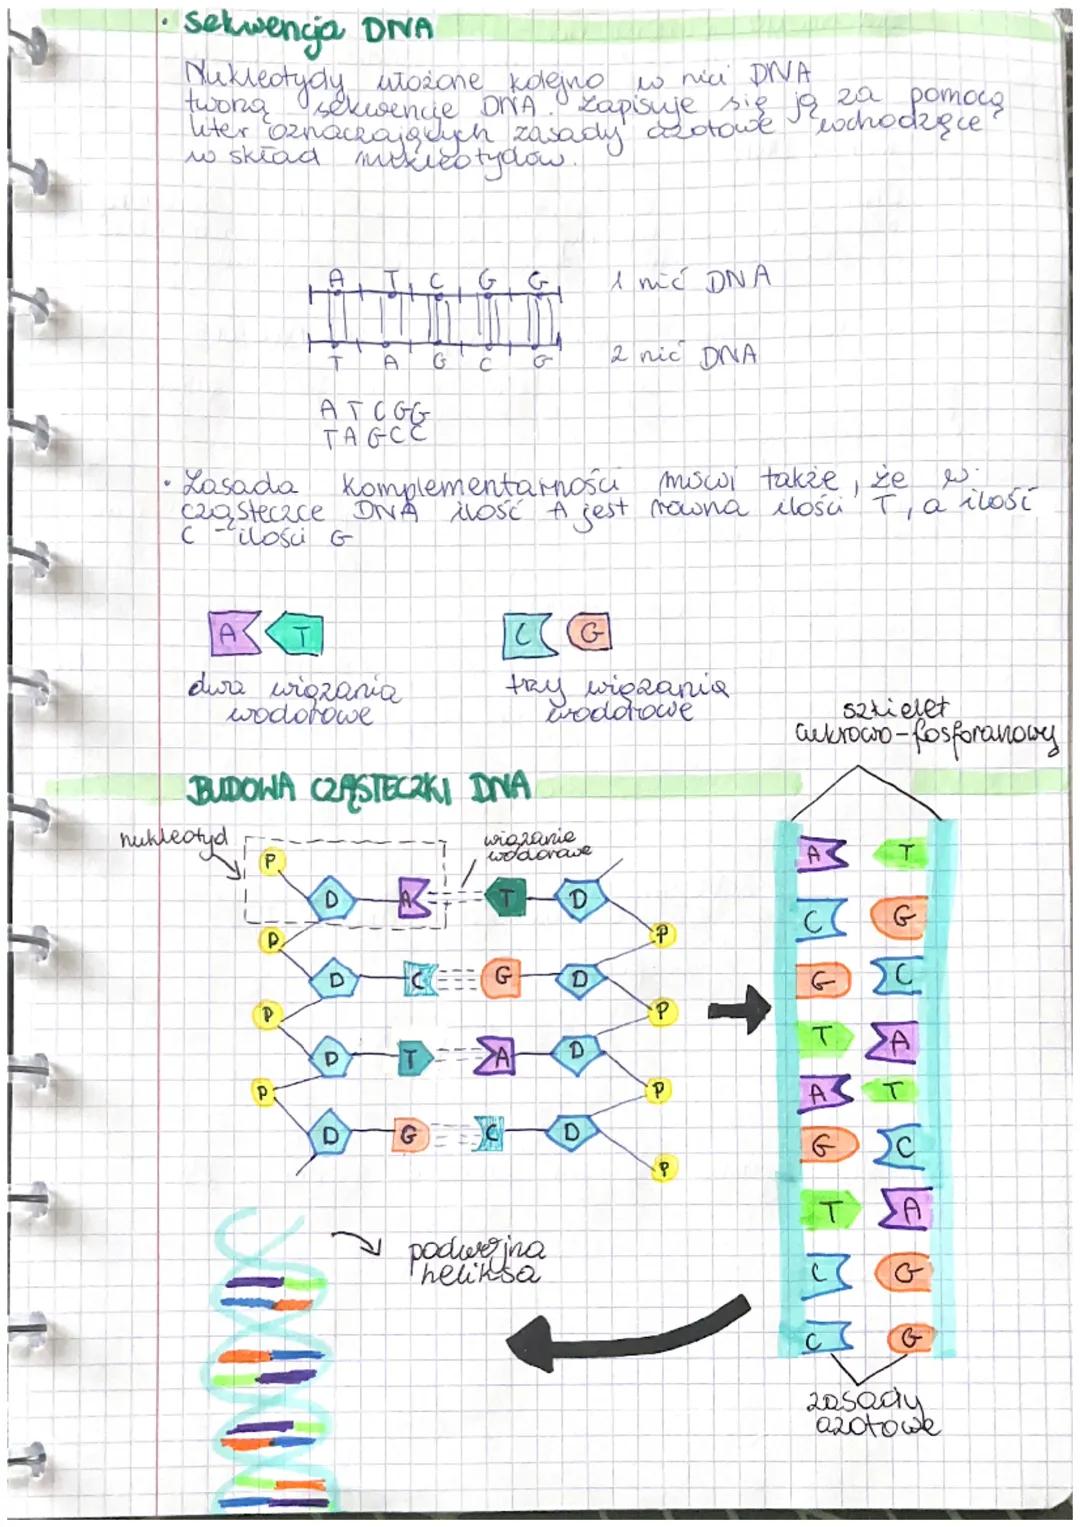 • Sekwencja DNA
Nukleotydy ułożone kolejno w nici DNA
tworzą sekwencje DNA. Zapisuje się ją za pomocą
liter oznaczających zasady azotowe wchodzące
w skład nukleotydów.
A T C G G 1 nić DNA
T A G C G 2 nić DNA
ATCGG
TAGCC
• Zasada komplementarności mówi także, że w
cząsteczce DNA ilość A jest równa ilości T, a ilość
C - ilości G
A T C G
dwa wiązania
wodorowe
trzy wiązania
wodorowe
szkielet
cukrowo-fosforanowy
BUDOWA CZĄSTECZKI DNA
nukleotyd
wiązanie
wodorowe
P
D A T D
P P
D C G D
P P
D T A D
P P
D G C D
P
A T
C G
G C
T A
A T
G C
T A
C G
C G
podwójna
heliksa
zasady
azotowe